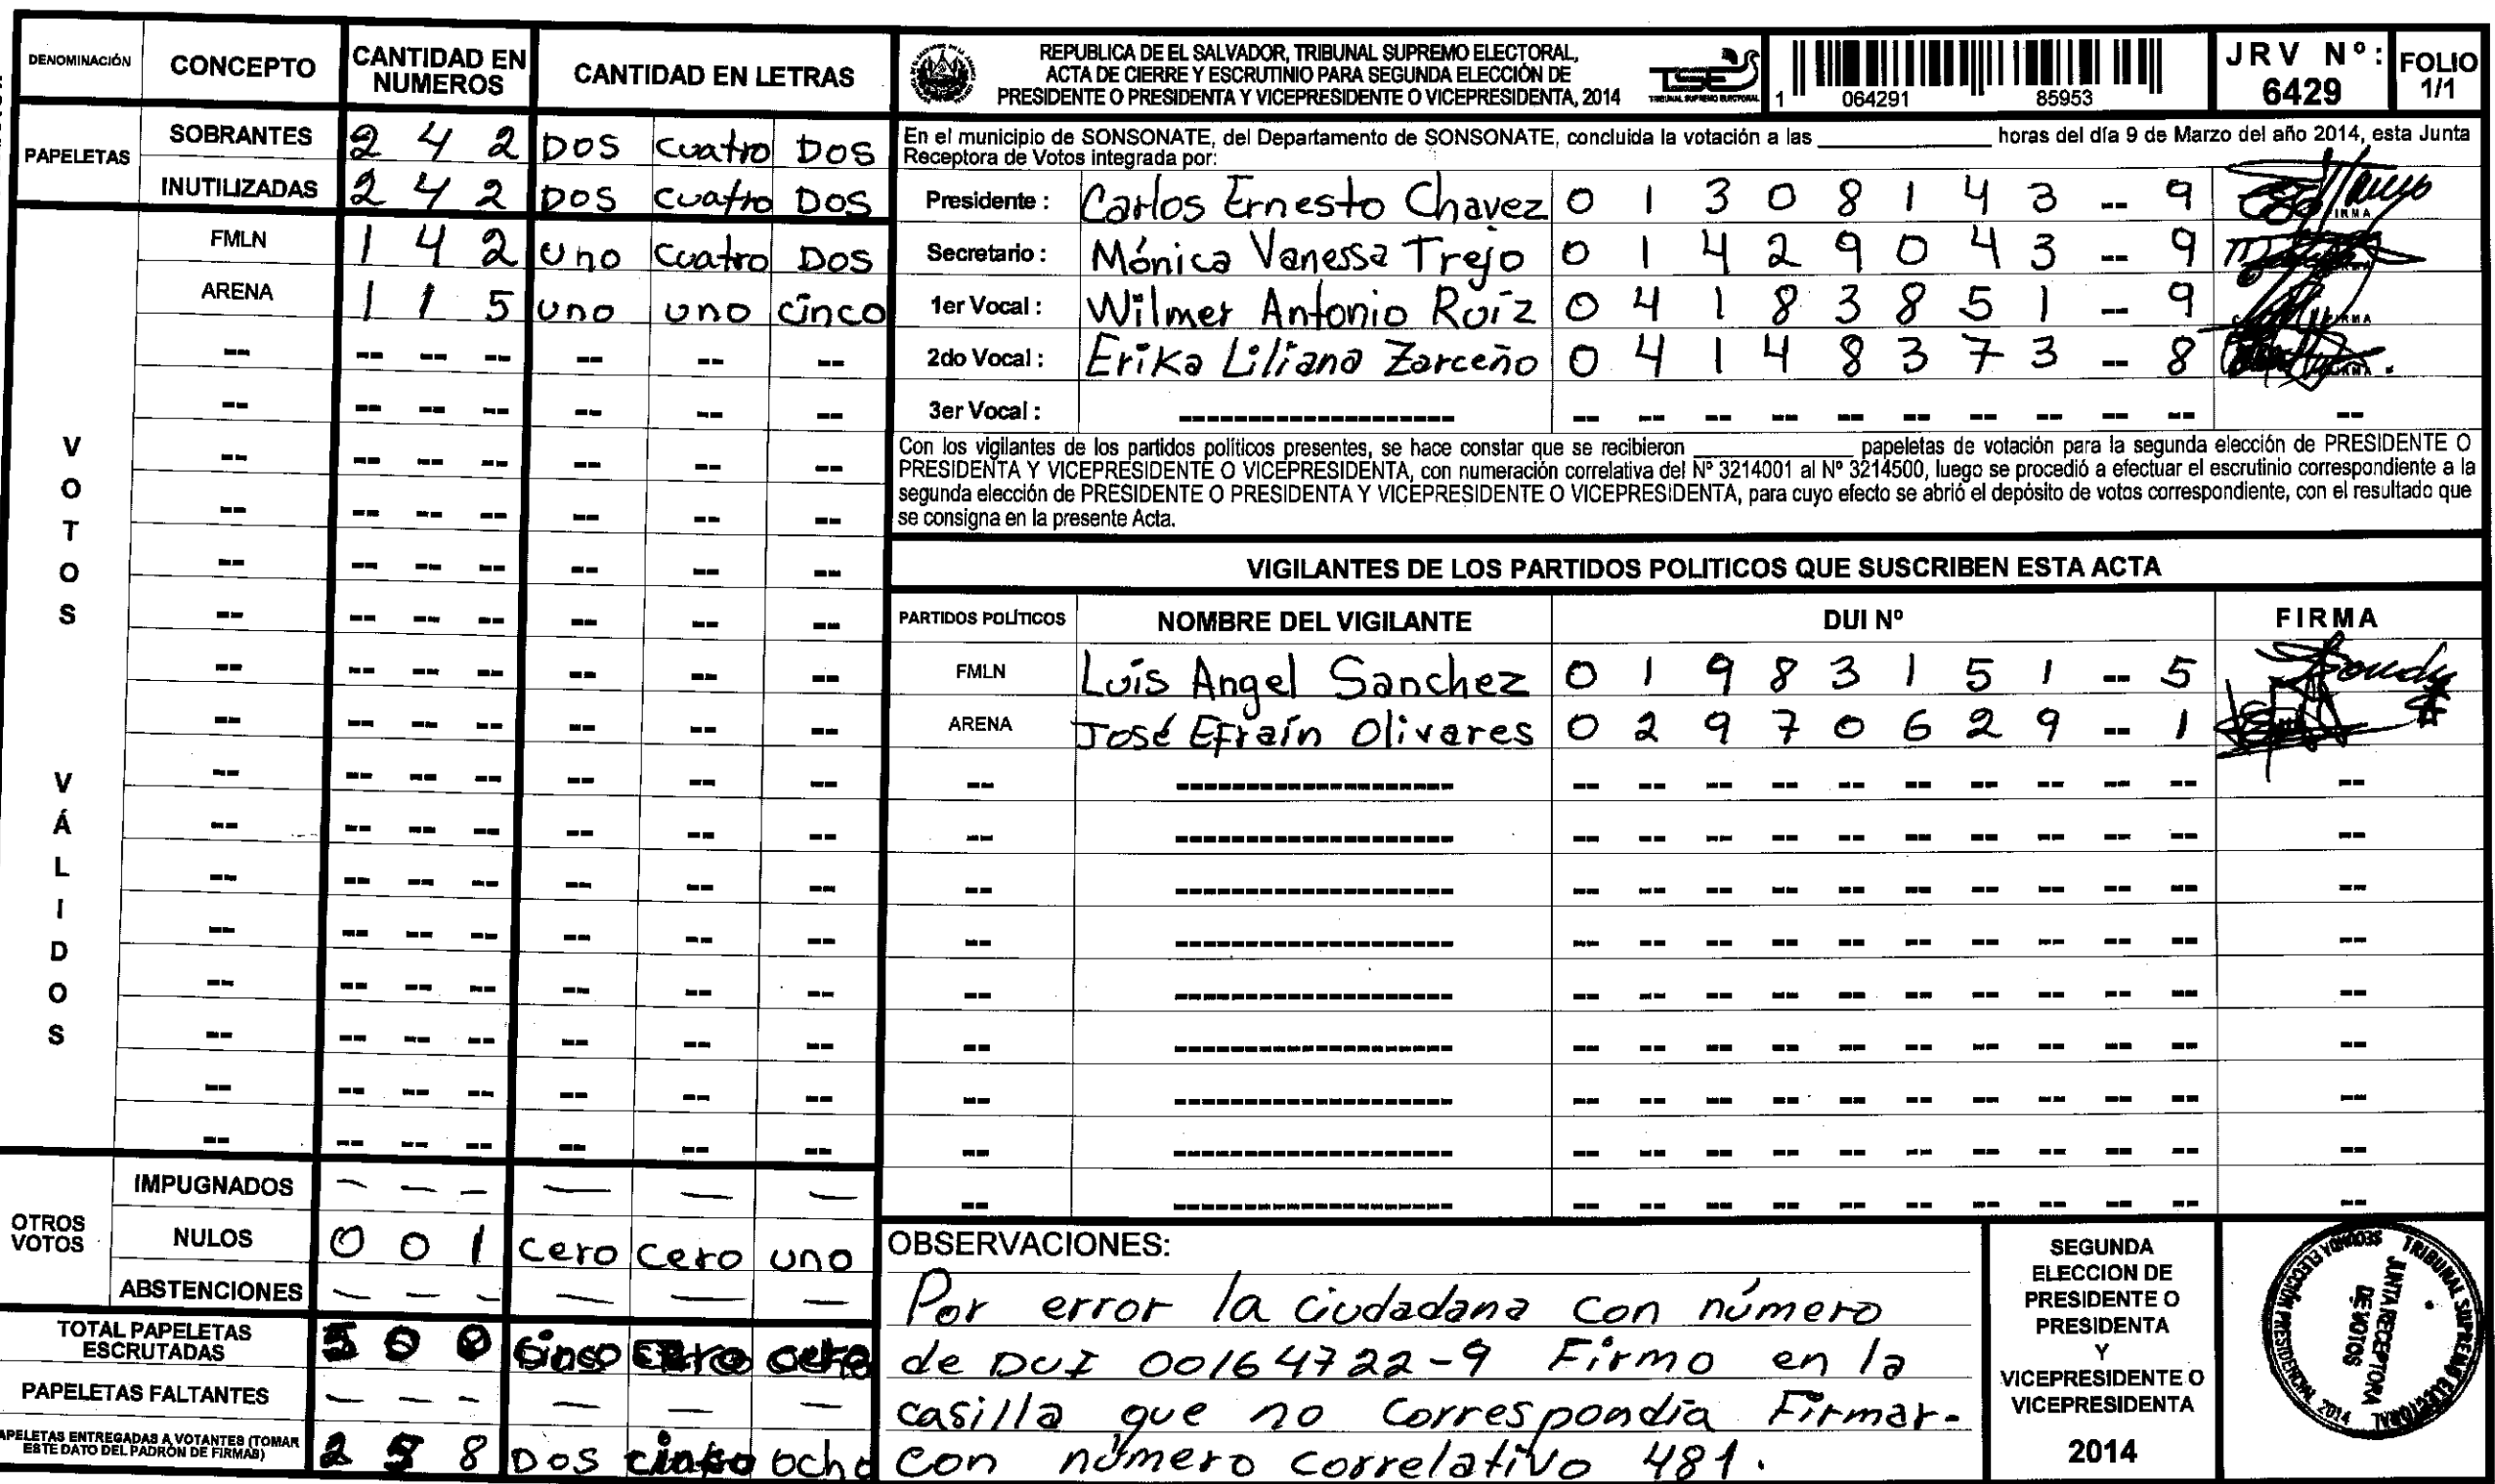 DENOMINACIÓN CONCEPTO CANTIDAD EN NUMEROS CANTIDAD EN LETRAS
PAPELETAS
SOBRANTES 2 4 2 DOS cuatro DOS
INUTILIZADAS 2 4 2 DOS cuatro DOS
VOTOS VÁLIDOS
FMLN 1 4 2 uno cuatro DOS
ARENA 1 1 5 uno uno cinco
OTROS VOTOS
IMPUGNADOS — — — — — —
NULOS 0 0 1 cero cero uno
ABSTENCIONES — — — — — —
TOTAL PAPELETAS ESCRUTADAS 5 0 0 cinco cero cero
PAPELETAS FALTANTES — — — — — —
PAPELETAS ENTREGADAS A VOTANTES (TOMAR
ESTE DATO DEL PADRÓN DE FIRMAS) 2 5 8 DOS cinco ocho
REPUBLICA DE EL SALVADOR, TRIBUNAL SUPREMO ELECTORAL,
ACTA DE CIERRE Y ESCRUTINIO PARA SEGUNDA ELECCIÓN DE
PRESIDENTE O PRESIDENTA Y VICEPRESIDENTE O VICEPRESIDENTA, 2014
TSE
TRIBUNAL SUPREMO ELECTORAL
1 064291 85953
JRV Nº: 6429
FOLIO 1/1
En el municipio de SONSONATE, del Departamento de SONSONATE, concluida la votación a las ____________ horas del día 9 de Marzo del año 2014, esta Junta
Receptora de Votos integrada por:
Presidente : Carlos Ernesto Chavez 0 1 3 0 8 1 4 3 -- 9
Secretario : Mónica Vanessa Trejo 0 1 4 2 9 0 4 3 -- 9
1er Vocal : Wilmer Antonio Ruíz 0 4 1 8 3 8 5 1 -- 9
2do Vocal : Erika Liliana Zarceño 0 4 1 4 8 3 7 3 -- 8
3er Vocal :
Con los vigilantes de los partidos políticos presentes, se hace constar que se recibieron ____________ papeletas de votación para la segunda elección de PRESIDENTE O
PRESIDENTA Y VICEPRESIDENTE O VICEPRESIDENTA, con numeración correlativa del Nº 3214001 al Nº 3214500, luego se procedió a efectuar el escrutinio correspondiente a la
segunda elección de PRESIDENTE O PRESIDENTA Y VICEPRESIDENTE O VICEPRESIDENTA, para cuyo efecto se abrió el depósito de votos correspondiente, con el resultado que
se consigna en la presente Acta.
VIGILANTES DE LOS PARTIDOS POLITICOS QUE SUSCRIBEN ESTA ACTA
PARTIDOS POLÍTICOS NOMBRE DEL VIGILANTE DUI Nº FIRMA
FMLN Luís Angel Sanchez 0 1 9 8 3 1 5 1 -- 5
ARENA José Efraín Olivares 0 2 9 7 0 6 2 9 -- 1
OBSERVACIONES:
Por error la ciudadana con número
de DUI 00164722-9 Firmo en la
casilla que no correspondía Firmar-
con número correlativo 481.
SEGUNDA
ELECCION DE
PRESIDENTE O
PRESIDENTA
Y
VICEPRESIDENTE O
VICEPRESIDENTA
2014
TRIBUNAL SUPREMO ELECTORAL
SEGUNDA ELECCIÓN PRESIDENCIAL 2014
JUNTA RECEPTORA
DE VOTOS